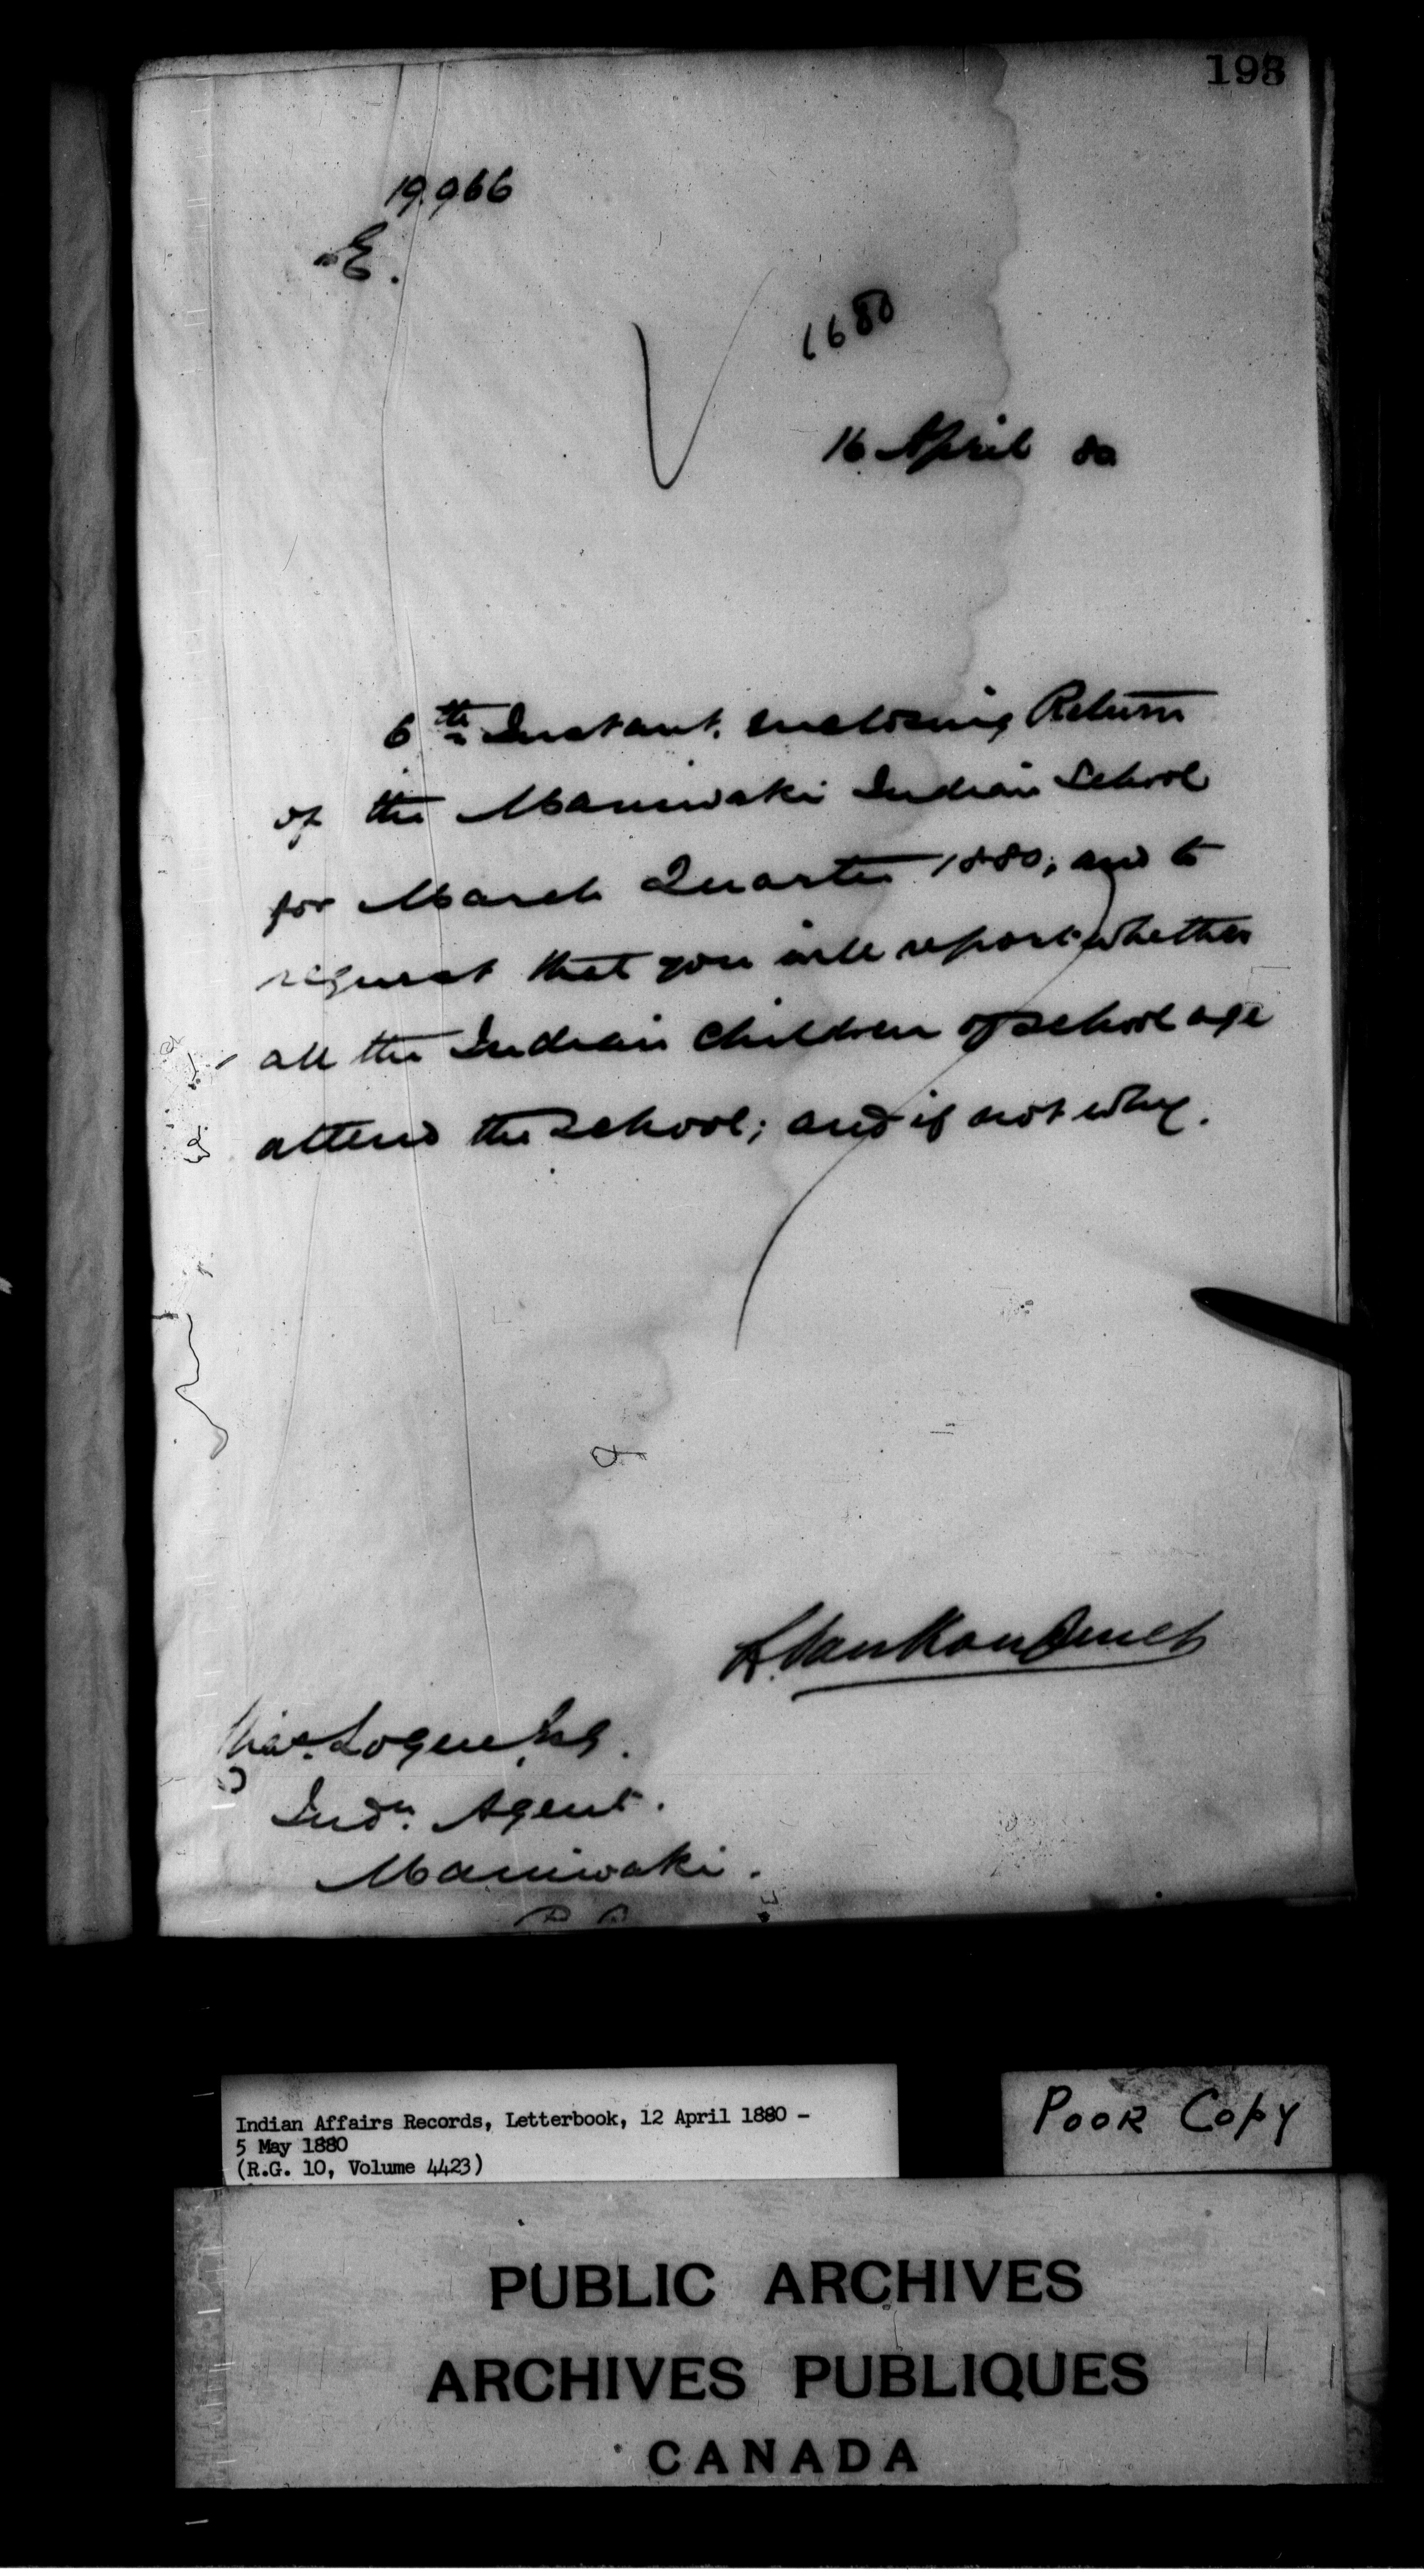 193
19.966
E.
1680
16 April 80
6th Instant, enclosing Return
of the Maniwaki Indian School
for March Quarter 1880; and to
request that you will report whether
all the Indian children of school age
attend the school; and if not why.
L. VanKoughnet
Chas. Logue Esq.
Indn. Agent.
Maniwaki.
Indian Affairs Records, Letterbook, 12 April 1880 -
5 May 1880
(R.G. 10, Volume 4423)
POOR COPY
PUBLIC ARCHIVES
ARCHIVES PUBLIQUES
CANADA